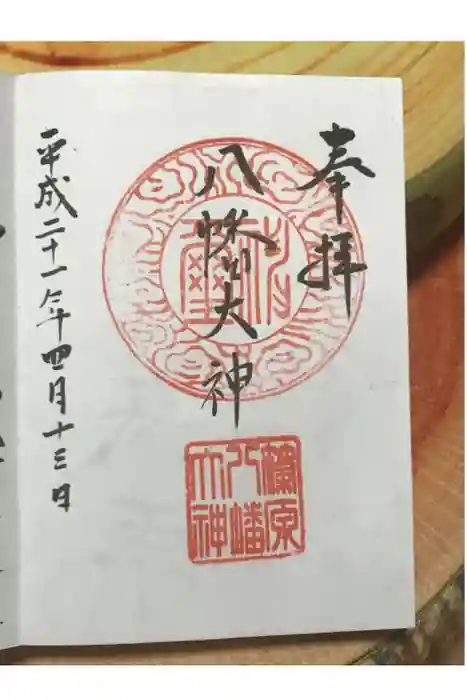 奉拝
八幡大神
平成二十一年四月十三日
神璽
原
八幡
大神